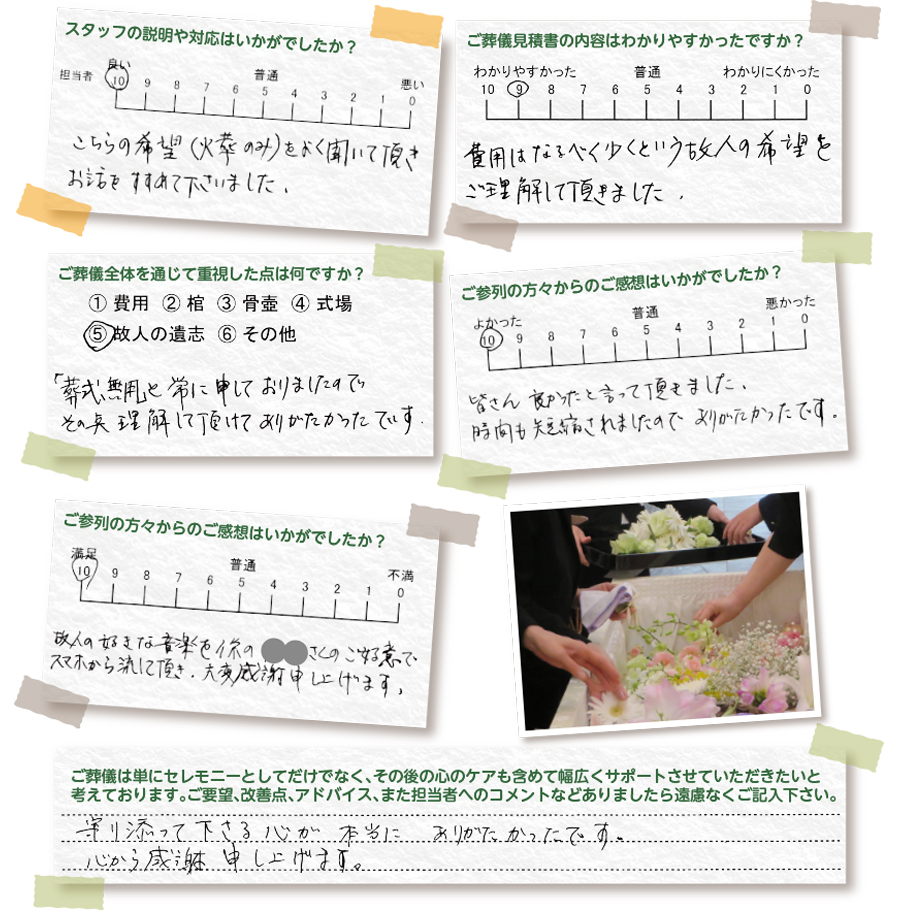 スタッフの説明や対応はいかがでしたか?
良い 普通 悪い
担当者 10 9 8 7 6 5 4 3 2 1 0
こちらの希望(火葬のみ)をよく聞いて頂き
お話をすすめて下さいました.
ご葬儀見積書の内容はわかりやすかったですか?
わかりやすかった 普通 わかりにくかった
10 9 8 7 6 5 4 3 2 1 0
費用はなるべく少くという故人の希望を
ご理解して頂きました.
ご葬儀全体を通じて重視した点は何ですか?
① 費用 ② 棺 ③ 骨壺 ④ 式場
⑤ 故人の遺志 ⑥ その他
「葬式無用」と常に申しておりましたので
その点理解して頂けてありがたかったです.
ご参列の方々からのご感想はいかがでしたか?
よかった 普通 悪かった
10 9 8 7 6 5 4 3 2 1 0
皆さん良かったと言って頂きました、
時間も短縮されましたのでありがたかったです。
ご参列の方々からのご感想はいかがでしたか?
満足 普通 不満
10 9 8 7 6 5 4 3 2 1 0
故人の好きな音楽を係の さんのご好意で
スマホから流して頂き、大変感謝申し上げます。
ご葬儀は単にセレモニーとしてだけでなく、その後の心のケアも含めて幅広くサポートさせていただきたいと
考えております。ご要望、改善点、アドバイス、また担当者へのコメントなどありましたら遠慮なくご記入下さい。
寄り添って下さる心が 本当に ありがたかったです。
心から感謝申し上げます。